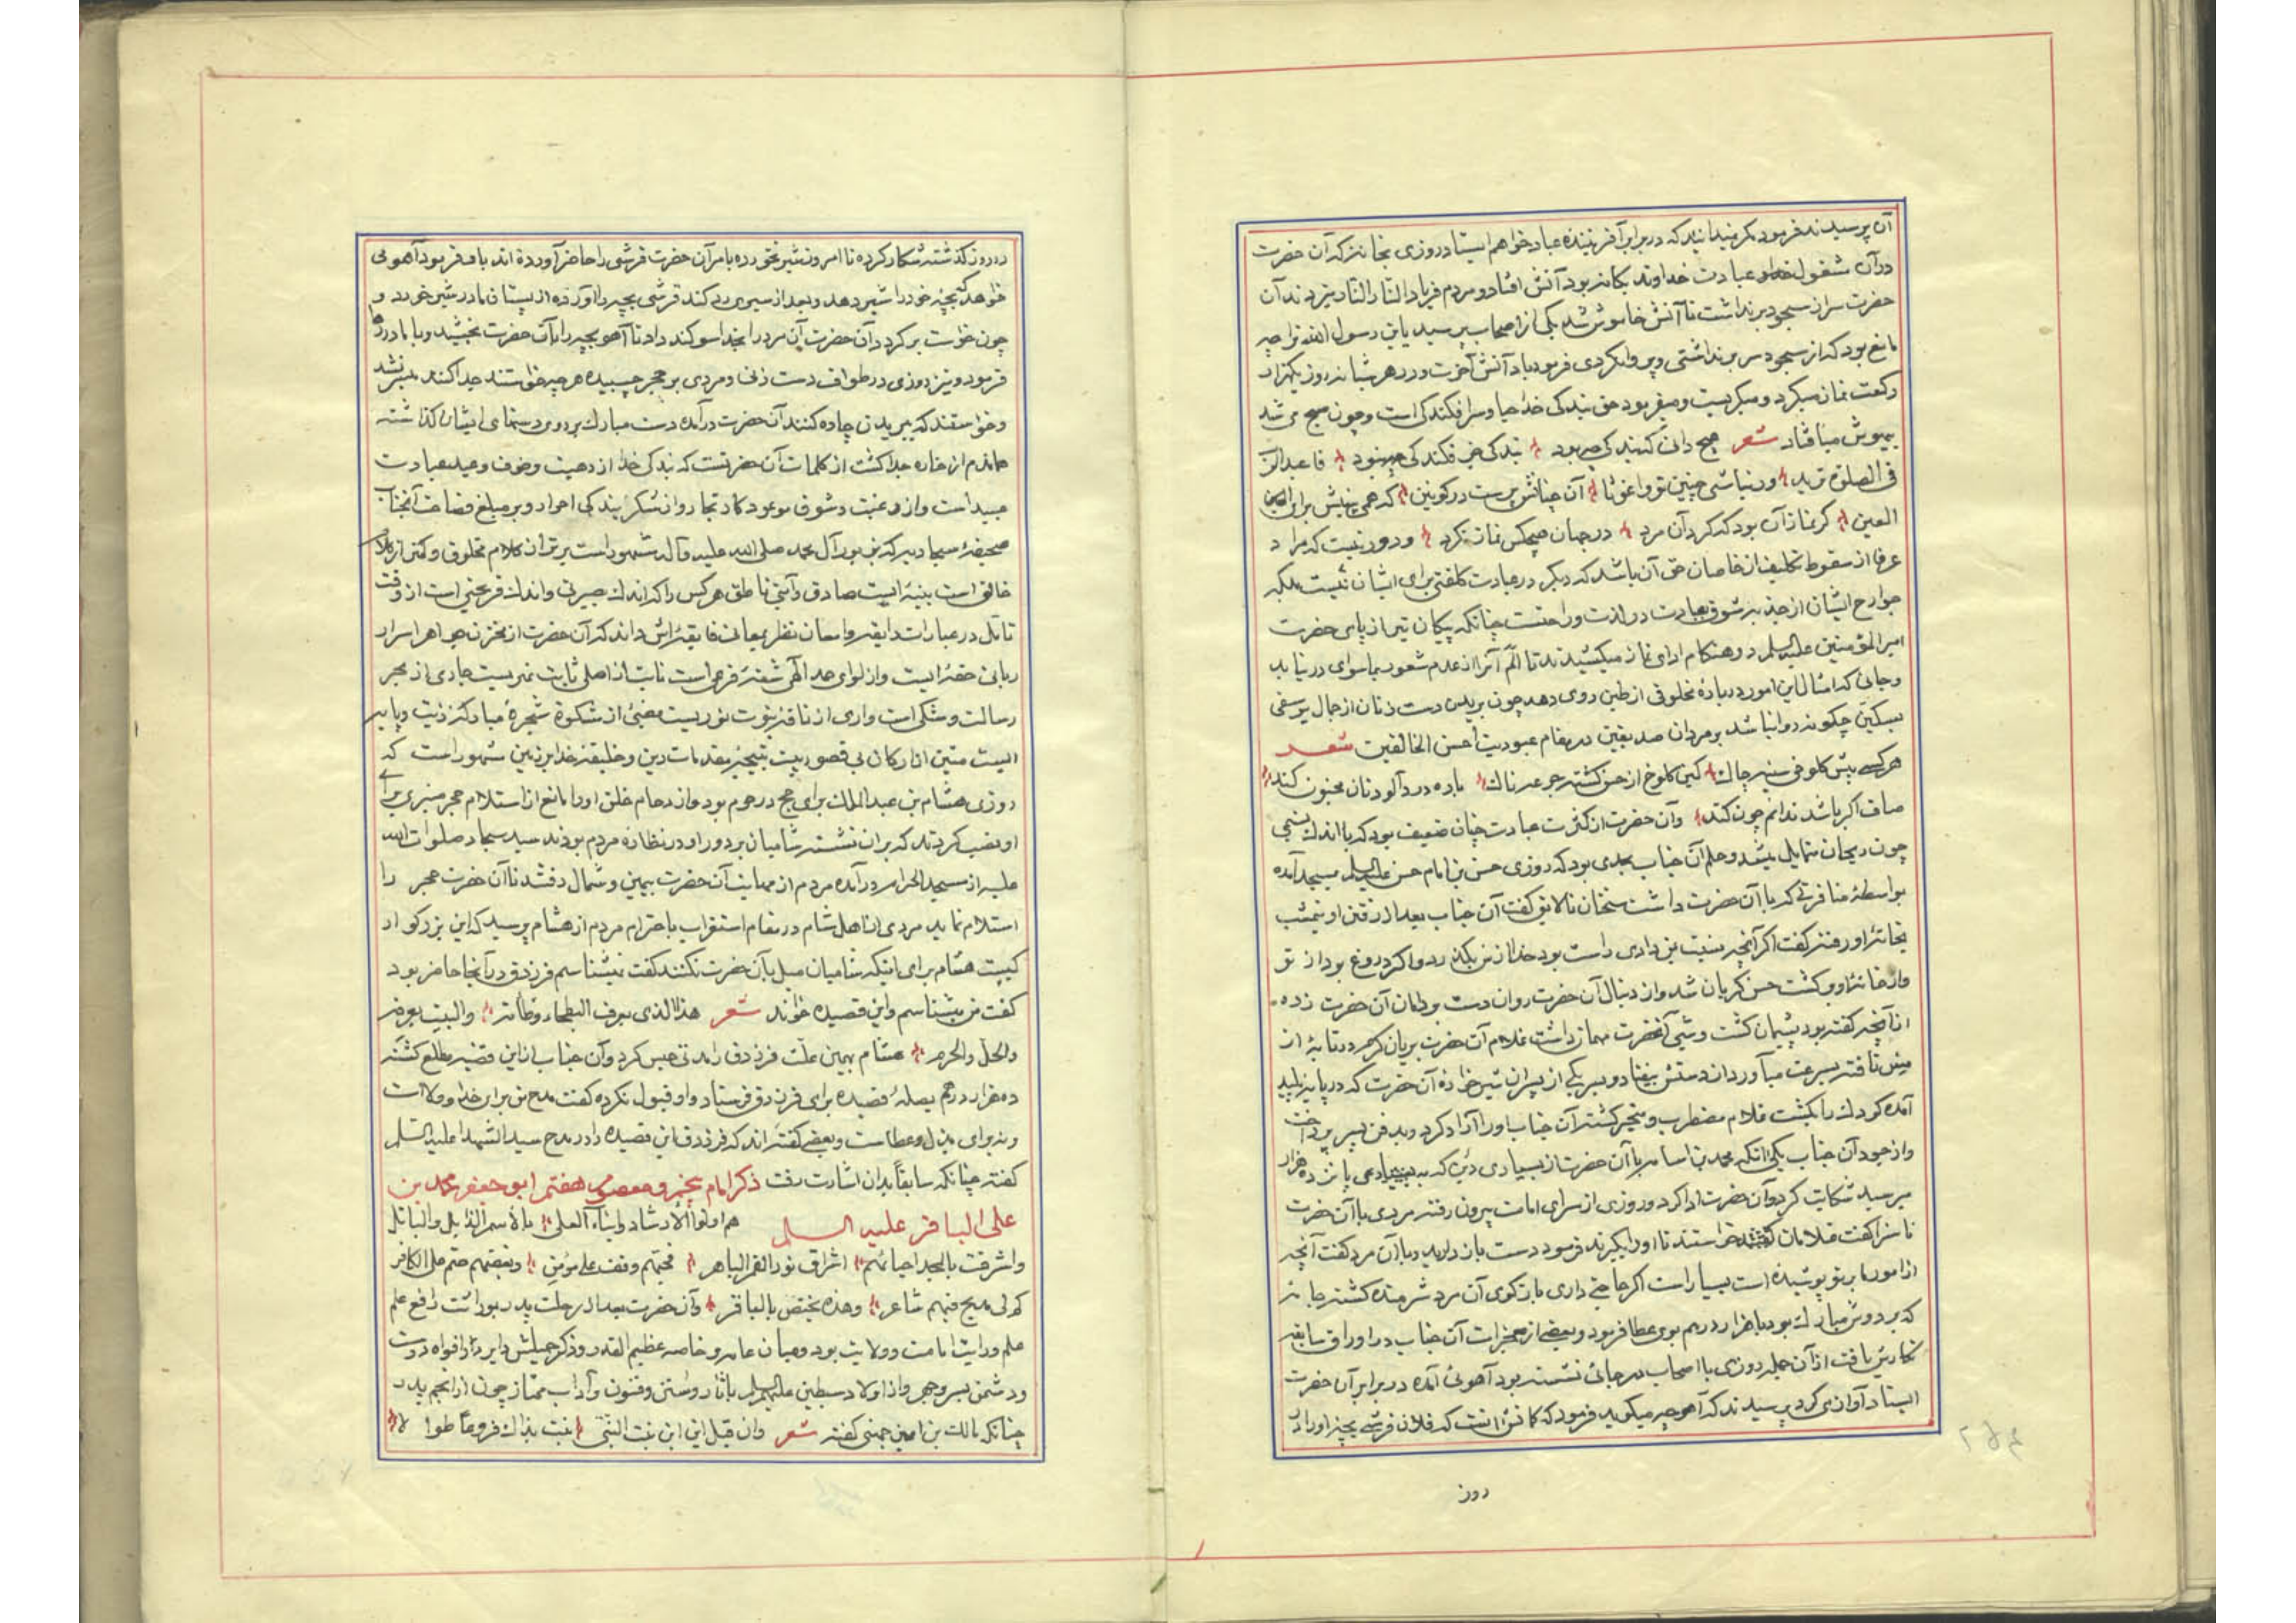 آن پرسیدند فرمود مگر نمیدانید که در برابر آفریننده عباد خواهم ایستاد روزی بخانهٔ که آن حضرت
در آن مشغول عبادت خداوند یگانه بود آتش افتاد و مردم فریاد النار النار میزدند آن
حضرت سر از سجود بر نداشت تا آتش خاموش شد یکی از اصحاب پرسید یابن رسول الله ترا چه
مانع بود که از سجود سر بر نداشتی و پروا نکردی فرمود یاد آتش آخرت و در هر شبانه روز یکهزار
رکعت نماز میکرد و میگریست و میفرمود حق بندگی خدا حیا و سرافکندگی است و چون صبح می شد
بیهوش میافتاد شعر هیچ دانی که بندگی چه بود بندگی جز فکندگی چه بود
فی الصلوة در دنیا شی چنین تو واغوثا آن چنانش پرست در کونین که همی بینیش برای العین
العین گر نماز آن بود که کرد آن مرد در جهان هیچکس نماز نکرد و دور نیست که مراد
عرفا از سقوط تکلیف از خاصان حق آن باشد که دیگر در عبادت کلفتی برای ایشان نیست بلکه
جوارح ایشان از جذبه شوق عبادت در لذت و راحتست چنانکه پیکان تیر از پای حضرت
امیر المؤمنین علیه السلام در هنگام ادای نماز میکشیدند تا الم آنرا از عدم شعور بماسوای در نیابد
و جائی که امثال این امور در بارهٔ مخلوقی از طین روی دهد چون بریدن دست زنان از جمال یوسفی
بسکین چگونه روا نباشد بر مردان صدیقین در مقام عبودیت احسن الخالقین شعر
هر کسی پیش کلوخی سینه چاک کین کلوخ از حسن گشته جرعه ناک باده درد آلودتان مجنون کند
صاف اگر باشد ندانم چون کند و آن حضرت از کثرت عبادت چنان ضعیف بود که با اندک نسیمی
چون ریحان متمایل میشد و حلم آن جناب بحدی بود که روزی حسن بن امام حسن علیه السلام بمسجد آمده
بواسطهٔ منافرتی که با آن حضرت داشت سخنان نالایق گفت آن جناب بعد از رفتن او بنهشب
بخانهٔ او رفته گفت اگر آنچه نسبت بمن دادی راست بود خدا از من بگذرد و اگر دروغ بود از تو
و از خانهٔ او برگشت حسن گریان شد و از دنبال آن حضرت روان دست بدامان آن حضرت زده
از آنچه گفته بود پشیمان گشت و شبی آنحضرت مهمان داشت غلام آن حضرت بریان گرم در تابهٔ از
مس تافته بسرعت میآورد از دستش بیفتاد و بسر یکی از پسران شیرخوارهٔ آن حضرت که در پایه پلید
آمده کودک را بکشت غلام مضطرب و متحیر گشته آن جناب او را آزاد کرد و بدفن پسر پرداخت
و از جود آن جناب یکی آنکه محمد بن اسامه با آن حضرت از بسیاری دین که به پانزده هزار
میرسید شکایت کرد و آن حضرت ادا کرد و روزی از سرای امامت بیرون رفته مردی با آن حضرت
ناسزا گفت غلامان خواستند تا او را بگیرند فرمود دست باز دارید و با آن مرد گفت آنچه
از امور ما بر تو پوشیده است بسیار است اگر حاجتی داری باز گوی آن مرد شرمنده گشته جامهٔ
که بر دوش مبارک بود با هزار درهم بوی عطا فرمود و بعضی از معجزات آن جناب در اوراق سابقه
نگارش یافت از آن جمله روزی با اصحاب در جائی نشسته بود آهوئی آمده در برابر آن حضرت
ایستاد آواز می کرد پرسیدند که آهو چه میگوید فرمود که کانش آنست که فلان قرشی بچهٔ او را
روز
در روز گذشته شکار کرده تا امروز شیر نخورده بامر آن حضرت قرشی را حاضر آورده اند باو فرمود آهو می
خواهد که بچهٔ خود را شیر دهد و بعد از سیری رد کند قرشی بچه را آورده از پستان مادر شیر خورد و
چون خواست بر گردد آن حضرت آن مرد را بخدا سوگند داد تا آهو بچه را بآن حضرت بخشید و با مادر رها
فرمود و نیز روزی در طواف دست زنی و مردی بر حجر چسبیده هر چه خواستند جدا کنند میسر نشد
و خواستند که ببریدن چاره کنند آن حضرت در آمده دست مبارک بر روی دستهای ایشان گذاشته
هماندم از خاره جدا گشت از کلمات آن حضرتست که بندگی خدا از رهبت و خوف وعید عبادت
عبید است و از رغبت و شوق موعود کار تجار و از شکر بندگی احرار و بر مبلغ فصاحت آنجناب
صحیفهٔ سجادیه که بزبور آل محمد صلی الله علیه و آله مشهور است برتر از کلام مخلوق و کمتر از کلام
خالق است بینهٔ ایست صادق و آیتی ناطق هر کس را که اندک خبرتی و اندک قریحتی است از وقت
تأمل در عبارات رایقه و امعان نظر بمعانی فایقه‌اش داند که آن حضرت از مخزن جواهر اسرار
ربانی حقهٔ ایست و از لوای حمد الهی شقهٔ فرعی است نابت از اصلی ثابت نهریست جاری از بحر
رسالت و مشکی است واری از نافهٔ نبوت نوریست مضیئ از مشکوة شجرهٔ مبارکهٔ زیت و پایه
ایست متین از ارکان بی قصور بیت نتیجهٔ مقدمات دین و خلیفهٔ خدا بر زمین مشهور است که
روزی هشام بن عبدالملک برای حج در حرم بود و ازدحام خلق او را مانع از استلام حجر منبری برای
او نصب کردند که بر آن نشسته شامیان بر دور او در نظارهٔ مردم بودند سید سجاد صلوات الله
علیه از مسجد الحرام در آمده مردم از مهابت آن حضرت بیمین و شمال رفتند تا آن حضرت حجر را
استلام نماید مردی از اهل شام در مقام استغراب باحترام مردم از هشام پرسید که این بزرگوار
کیست هشام برای اینکه شامیان میل بآن حضرت نکنند گفت نمیشناسم فرزدق در آنجا حاضر بود
گفت من میشناسم و این قصیده خواند شعر هذا الذی تعرف البطحاء وطأته والبیت یعرفه
والحل والحرم هشام بهمین علت فرزدق را مدتی حبس کرد و آن جناب از این قضیه مطلع گشته
ده هزار درهم بصلهٔ قصیده برای فرزدق فرستاد و او قبول نکرده گفت مدح من برای خدا و ولا است
و نه برای بذل و عطاست و بعضی گفته‌اند که فرزدق این قصیده را در مدح سید الشهدا علیه السلام
گفته چنانکه سابقاً بدان اشارت رفت ذکر امام پنجم و معصوم هفتم ابو جعفر محمد بن
علی الباقر علیه السلام هم اولوا الارشاد وابناء العلی
واشرقت بالمجد احیائهم اشراق نور القمر الباهر فحبهم وقف علی مؤمن وبغضهم حتم علی الکافر
کم لی مدیح فیهم شاعر وهذه یختص بالباقر و آن حضرت بعد از رحلت پدر بوراثت رافع علم
علم و رایت امامت و ولایت بود و میان عامه و خاصه عظیم القدر و ذکر جمیلش دایر در افواه دوست
و دشمن بسر و جهر و از اولاد سبطین علیهم السلام بآثار و سنن و فنون و آداب ممتاز چون از انجم بدر
چنانکه مالک بن اعین جهنی گفته شعر وان قیل این ابن بنت النبی نلت بذاک فروعا طوالا